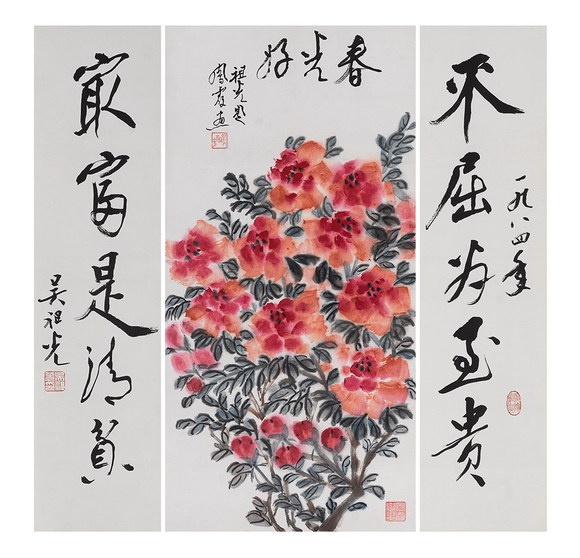 不屈为至贵
一九八四年
春光好
祖光题
凤霞画
最富是清贫
吴祖光